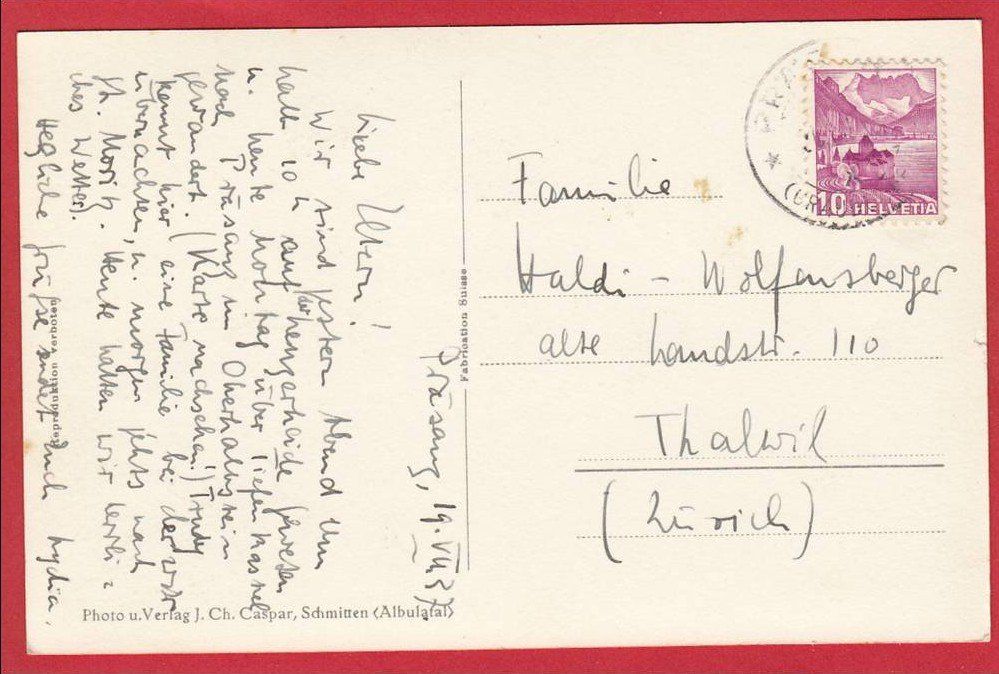 Präsanz, 19. VII. 37.
Liebe Eltern!
Wir sind gestern Abend um
halb 10 h auf der Lenzerheide gewesen
u. heute Montag über Tiefenkastel
nach Präsanz im Oberhalbstein
gewandert. (Karte nachschen!) Trudy
kennt hier eine Familie bei der wir
übernachten, u. morgen gehts nach
St. Moritz. Heute hatten wir herrli=
ches Wetter.
Herzliche Grüsse sendet Euch Lydia.
Reproduktion verboten
Photo u. Verlag J. Ch. Caspar, Schmitten (Albulatal)
Fabrication Suisse
10 HELVETIA
Familie
Haldi - Wolfensberger
alte Landstr. 110
Thalwil
(Zürich)